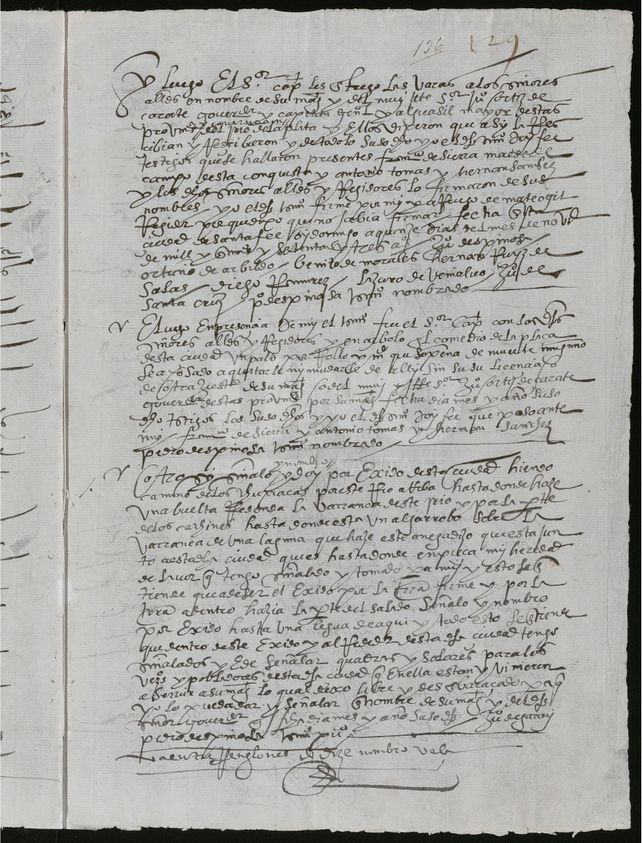 136 129
Y luego El Sor capn les Entrego las varas a los señores
alldes en nombre de su magd y del muy Ille Sor Juo ortiz de
carate gouerdor y capitan genl y alguazil mayor destas
provinas del rrio de la plata y ellos dixeron que asy las Res
cibian y Rescibieron y de todo lo susodho yo el dho esno doy fee
testigos que se hallaron presentes franco de sierra maese de
campo desta conquista y antonio tomas y hernan sanchez
y los dhos señores alldes y Regidores lo firmaron de sus
nombres / yo el dho esno firme por my y a Ruego de mateo gil
Regidor porque dixo que no sabia firmar / fecha en esta
ciudad de santa fee oy domingo a quinze dias del mes de novi
de mill y qunos y setenta y tres as / Juo de espinosa
ortuño de arbildo / benito de morales hernan Ruyz de
Salas / diego Ramirez / Lazaro de venialvo / Juo de
Santa Cruz / po de espinosa esno nombrado
E luego En presencia de mi el esno fue el Sor Capn con los dhos
Señores alldes y Regidores y en arbolo En comedio de la placa
desta ciudad un palo por Rollo y dixo que so pena de muerte ninguno
sea osado a quitarle ni mudarle de alli sin su licencia o
de otra justa de su magd so del muy Ille Sor Juo ortiz de carate
gouerdor destas provinas por su magd fecha dia mes y año suso
dho testigos los susodhos y yo el dho esno doy fee que paso ante
my / franco de sierra y antonio tomas y hernan sanchez
pedro despinosa esno nombrado
nombro
Otrosy señalo y doy por Exido desta ciudad hiendo
camino de los por este Rio arriba hasta donde haze
una buelta Redonda la barranca deste rrio y por la parte
de los hasta donde esta un algarrobo sobre la
barranca de una laguna que haze este anegadizo que esta jun
to a esta dha ciudad ques hasta donde enpieca mi heredad
de lavor que tengo señalado y tomado para mi y esto se En
tiende que a de ser el Exido por la tierra firme y por la
tierra adentro hazia la parte del salado señalo y nombro
por Exido hasta una legua de aqui y todo esto se Entiende
que dentro deste Exido y alrrededor desta dha ciudad tengo
señalados y E de señalar quadras y solares para los
vezos y pobladores desta dha ciudad que En ella estan y vinieren
a servir a su magd lo qual dexo libre y desenbaracado
En nombre de su magd y del dho
señor gouerdor fecha dia mes y año susodho / Juo de garay
pedro despinosa esno puco
Va entre Renglones do dize nombro vala